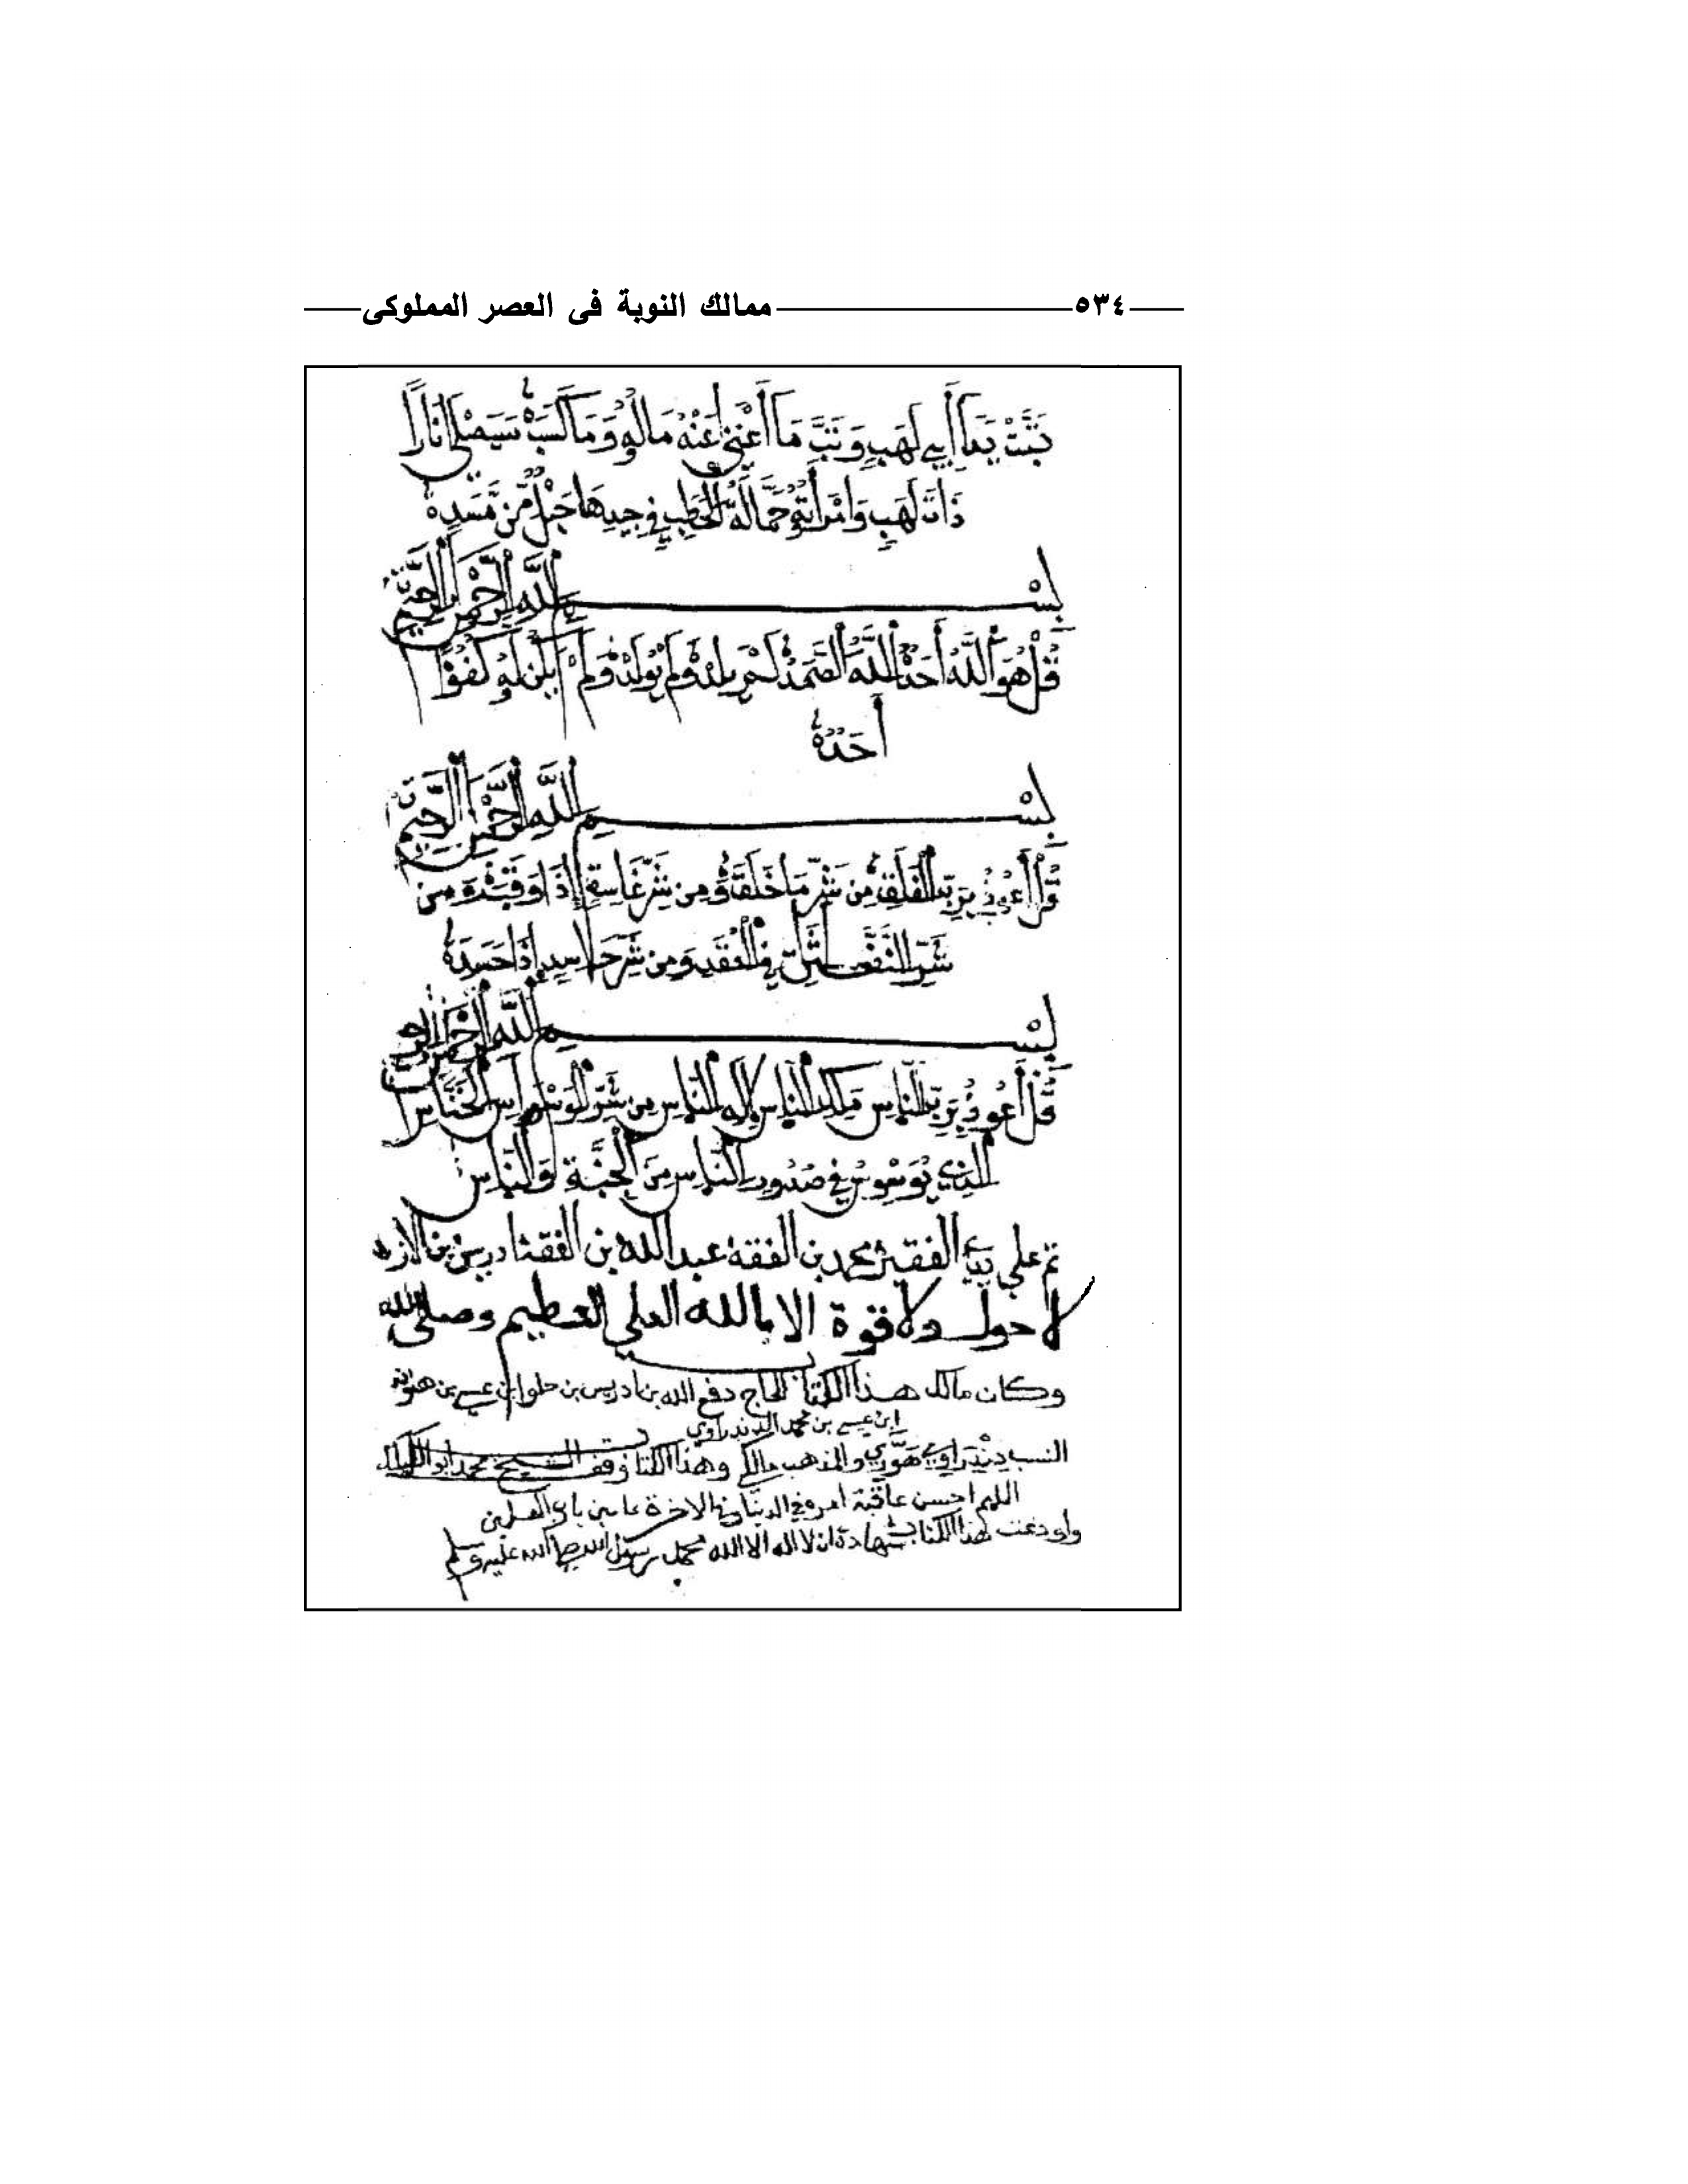 ٥٣٤ ممالك النوبة فى العصر المملوكى
تَبَّتْ يَدَا أَبِي لَهَبٍ وَتَبَّ مَا أَغْنَىٰ عَنْهُ مَالُهُ وَمَا كَسَبَ سَيَصْلَىٰ نَارًا
ذَاتَ لَهَبٍ وَامْرَأَتُهُ حَمَّالَةُ الْحَطَبِ فِي جِيدِهَا حَبْلٌ مِّن مَّسَدٍ
بِسْمِ اللَّهِ الرَّحْمَٰنِ الرَّحِيمِ
قُلْ هُوَ اللَّهُ أَحَدٌ اللَّهُ الصَّمَدُ لَمْ يَلِدْ وَلَمْ يُولَدْ وَلَمْ يَكُن لَّهُ كُفُوًا
أَحَدٌ
بِسْمِ اللَّهِ الرَّحْمَٰنِ الرَّحِيمِ
قُلْ أَعُوذُ بِرَبِّ الْفَلَقِ مِن شَرِّ مَا خَلَقَ وَمِن شَرِّ غَاسِقٍ إِذَا وَقَبَ وَمِن
شَرِّ النَّفَّـٰثَـٰتِ فِي الْعُقَدِ وَمِن شَرِّ حَاسِدٍ إِذَا حَسَدَ
بِسْمِ اللَّهِ الرَّحْمَٰنِ الرَّحِيمِ
قُلْ أَعُوذُ بِرَبِّ النَّاسِ مَلِكِ النَّاسِ إِلَٰهِ النَّاسِ مِن شَرِّ الْوَسْوَاسِ الْخَنَّاسِ
الَّذِي يُوَسْوِسُ فِي صُدُورِ النَّاسِ مِنَ الْجِنَّةِ وَالنَّاسِ
تم علي يد الفقير محمد بن الفقه عبد الله بن الفقه ادريس بن
لا حول ولا قوة الا بالله العلي العظيم وصلى الله
وكان مالك هذا الكتاب الحاج دفع الله بن ادريس بن حلو ابن عيسى بن
ابن عيسى بن محمد الدندراوي
النسب دندراوي هوّري والمذهب مالكي وهذا الكتاب وقف الشيخ محمد
اللهم احسن عاقبة امره في الدنيا وفي الاخرة
واودعت هذا الكتاب شهادة ان لا اله الا الله محمد رسول الله صلى الله عليه وسلم